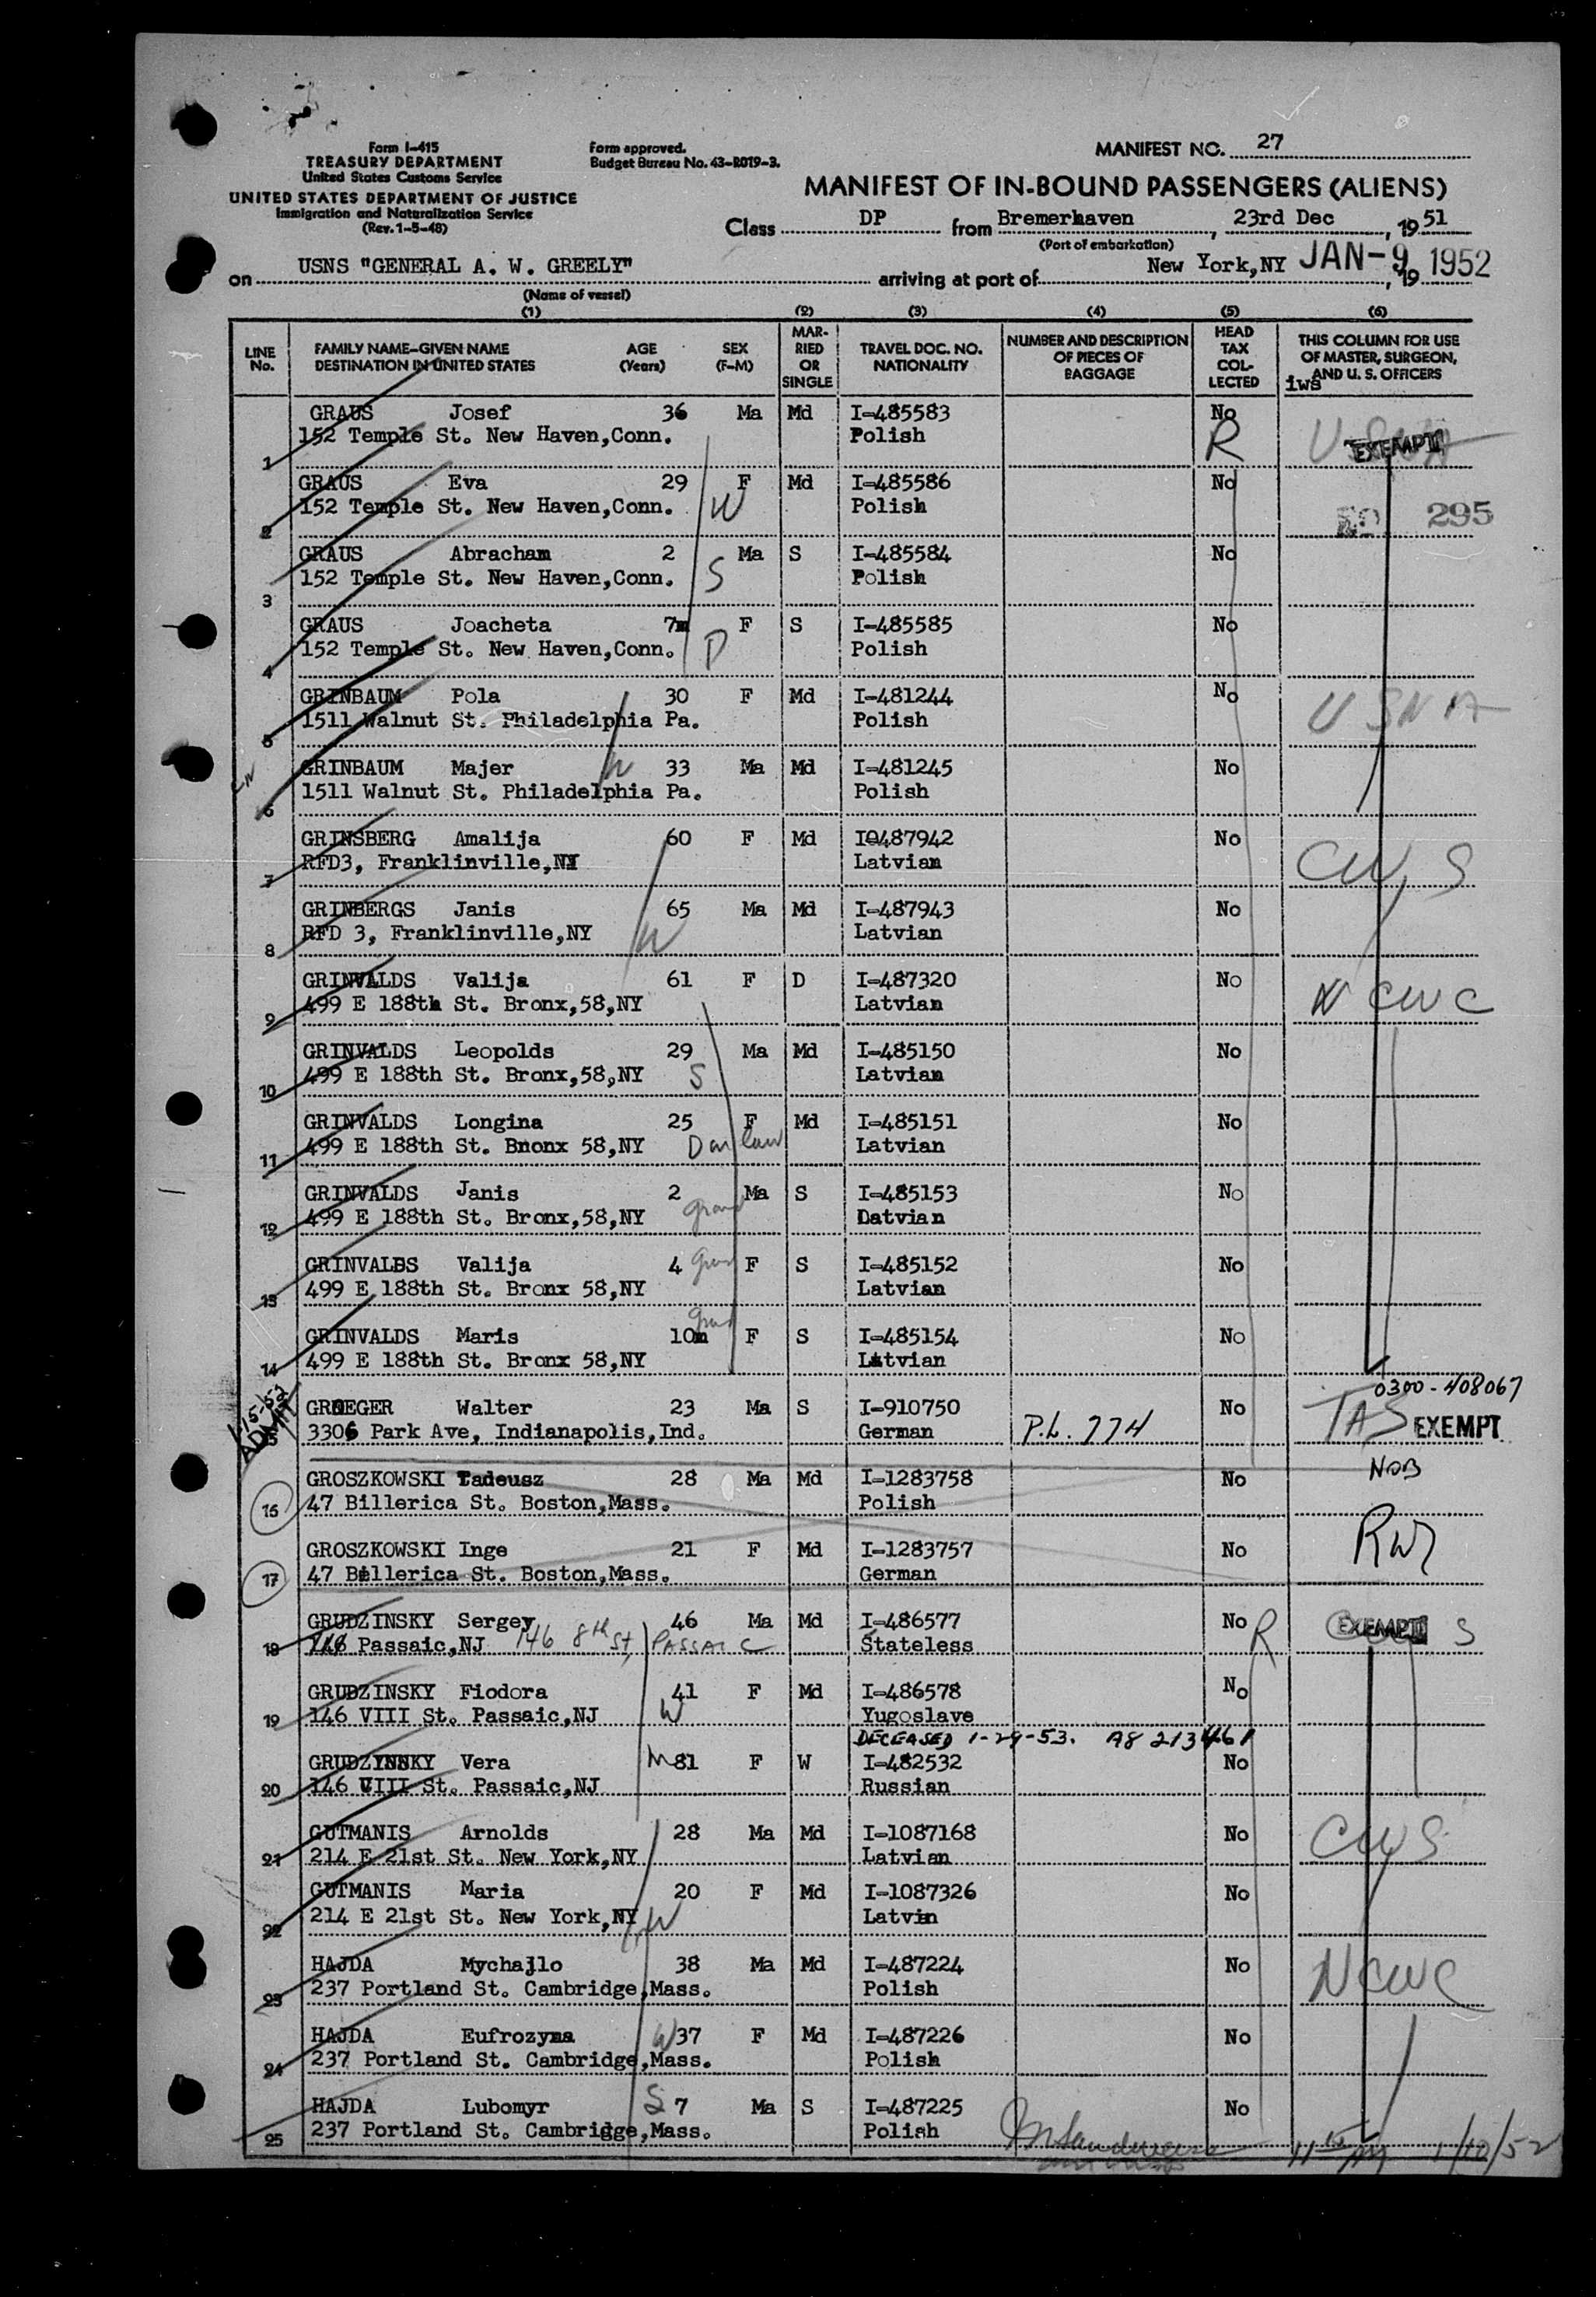 Form I-415
TREASURY DEPARTMENT
United States Customs Service
UNITED STATES DEPARTMENT OF JUSTICE
Immigration and Naturalization Service
(Rev. 1-5-48)
Form approved.
Budget Bureau No. 43-R019-3.
MANIFEST NO. 27
MANIFEST OF IN-BOUND PASSENGERS (ALIENS)
Class DP from Bremerhaven, 23rd Dec, 1951
(Port of embarkation)
on USNS "GENERAL A. W. GREELY" arriving at port of New York,NY JAN-9 1952, 19
(Name of vessel)
(1) (2) (3) (4) (5) (6)
LINE No. FAMILY NAME-GIVEN NAME DESTINATION IN UNITED STATES AGE (Years) SEX (F-M) MARRIED OR SINGLE TRAVEL DOC. NO. NATIONALITY NUMBER AND DESCRIPTION OF PIECES OF BAGGAGE HEAD TAX COLLECTED THIS COLUMN FOR USE OF MASTER, SURGEON, AND U. S. OFFICERS
iws
GRAUS Josef 36 Ma Md I-485583 No USNA EXEMPT
1 152 Temple St. New Haven,Conn. Polish R
GRAUS Eva 29 F Md I-485586 No
2 152 Temple St. New Haven,Conn. W Polish 295
GRAUS Abracham 2 Ma S I-485584 No
3 152 Temple St. New Haven,Conn. S Polish
GRAUS Joacheta 7m F S I-485585 No
4 152 Temple St. New Haven,Conn. D Polish
GRINBAUM Pola 30 F Md I-481244 No USNA
5 1511 Walnut St. Philadelphia Pa. Polish
GRINBAUM Majer W 33 Ma Md I-481245 No
6 1511 Walnut St. Philadelphia Pa. Polish
GRINSBERG Amalija 60 F Md I0487942 No CWS
7 RFD3, Franklinville,NY Latvian
GRINBERGS Janis 65 Ma Md I-487943 No
8 RFD 3, Franklinville,NY W Latvian
GRINVALDS Valija 61 F D I-487320 No NCWC
9 499 E 188th St. Bronx,58,NY Latvian
GRINVALDS Leopolds 29 Ma Md I-485150 No
10 499 E 188th St. Bronx,58,NY S Latvian
GRINVALDS Longina 25 F Md I-485151 No
11 499 E 188th St. Bnonx 58,NY D in law Latvian
GRINVALDS Janis 2 Ma S I-485153 No
12 499 E 188th St. Bronx,58,NY grand Datvian
GRINVALDS Valija 4 grand F S I-485152 No
13 499 E 188th St. Bronx 58,NY Latvian
GRINVALDS Maris 10m grand F S I-485154 No
14 499 E 188th St. Bronx 58,NY Latvian
0300-408067
1-15-52 ADMIT
GROEGER Walter 23 Ma S I-910750 No TAS EXEMPT
15 3306 Park Ave, Indianapolis,Ind. German P.L. 774
GROSZKOWSKI Tadeusz 28 Ma Md I-1283758 No NOB
16 47 Billerica St. Boston,Mass. Polish
GROSZKOWSKI Inge 21 F Md I-1283757 No
17 47 Billerica St. Boston,Mass. German
GRUDZINSKY Sergey 46 Ma Md I-486577 No R EXEMPT S
18 146 Passaic,NJ 146 8th St, PASSAIC Stateless
GRUDZINSKY Fiodora 41 F Md I-486578 No
19 146 VIII St. Passaic,NJ W Yugoslave
DECEASED 1-29-53. A8 213461
GRUDZYNSKY Vera M 81 F W I-482532 No
20 146 VIII St. Passaic,NJ Russian
GUTMANIS Arnolds 28 Ma Md I-1087168 No CWS
21 214 E 21st St. New York,NY Latvian
GUTMANIS Maria 20 F Md I-1087326 No
22 214 E 21st St. New York,NY W Latvin
HAJDA Mychajlo 38 Ma Md I-487224 No NCWC
23 237 Portland St. Cambridge,Mass. Polish
HAJDA Eufrozyna W 37 F Md I-487226 No
24 237 Portland St. Cambridge,Mass. Polish
HAJDA Lubomyr S 7 Ma S I-487225 No
25 237 Portland St. Cambridge,Mass. Polish
1/10/52